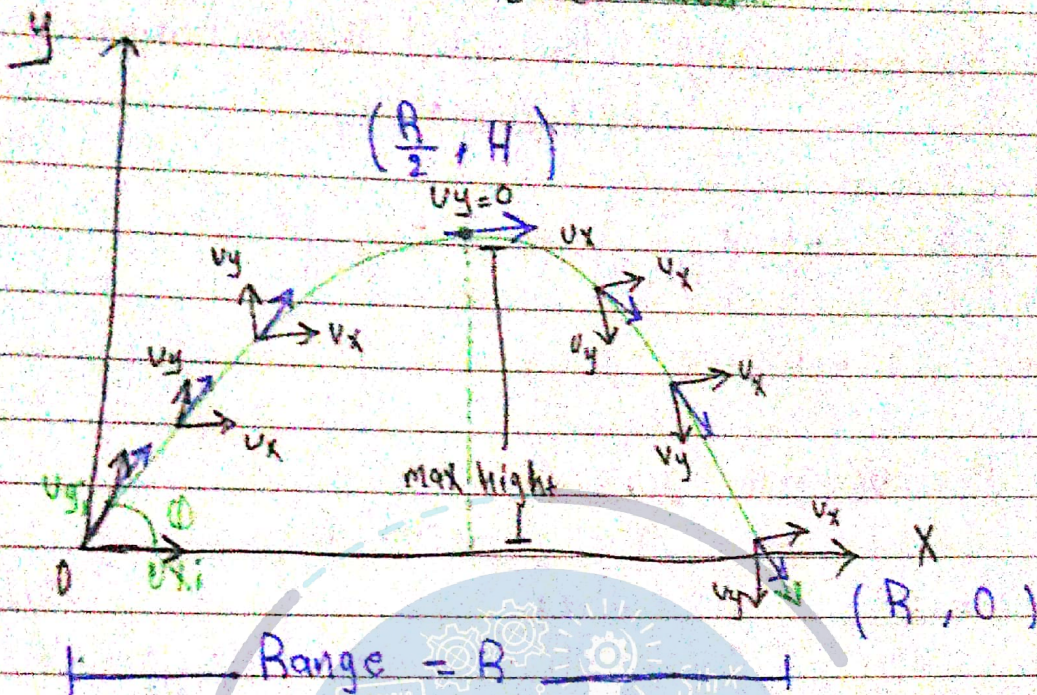 y
(R/2 , H)
vy=0
vx
vy
vx
vx
vy
vy
vx
vx
vy
max hight
vy,i
vx,i
vx
vy
X
0
(R , 0)
Range = R